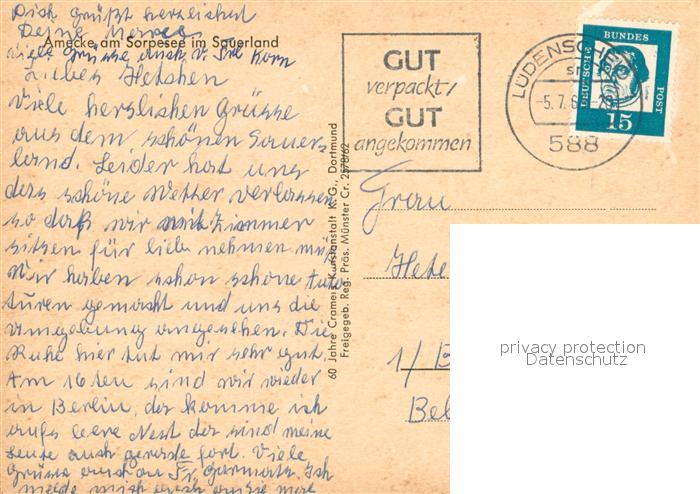 Dich grüßt herzlichst
Deine
Amecke am Sorpesee im Sauerland
viele Grüsse auch v. Korn
Liebes Hetchen
Viele herzlichen Grüsse
aus dem schönen Sauer-
land. Leider hat uns
das schöne Wetter verlassen
so daß wir mit Zimmer
sitzen für lieb nehmen
Wir haben schon schöne Auto
turen gemacht und uns die
Umgebung angesehen. Die
Ruhe hier tut mir sehr gut.
Am 16ten sind wir wieder
in Berlin, da komme ich
aufs leere Nest da sind meine
Leute auch gerade fort. Viele
Grüsse auch an Fr. Ich
melde mich auch
60 Jahre Cramers Kunstanstalt K.G., Dortmund
Freigegeb. Reg. Präs. Münster Cr. 2578/62
GUT
verpackt/
GUT
angekommen
LÜDENSCHEID
-5.7.6
588
DEUTSCHE BUNDESPOST
15
Frau
Hete
1/B
Bel
privacy protection
Datenschutz